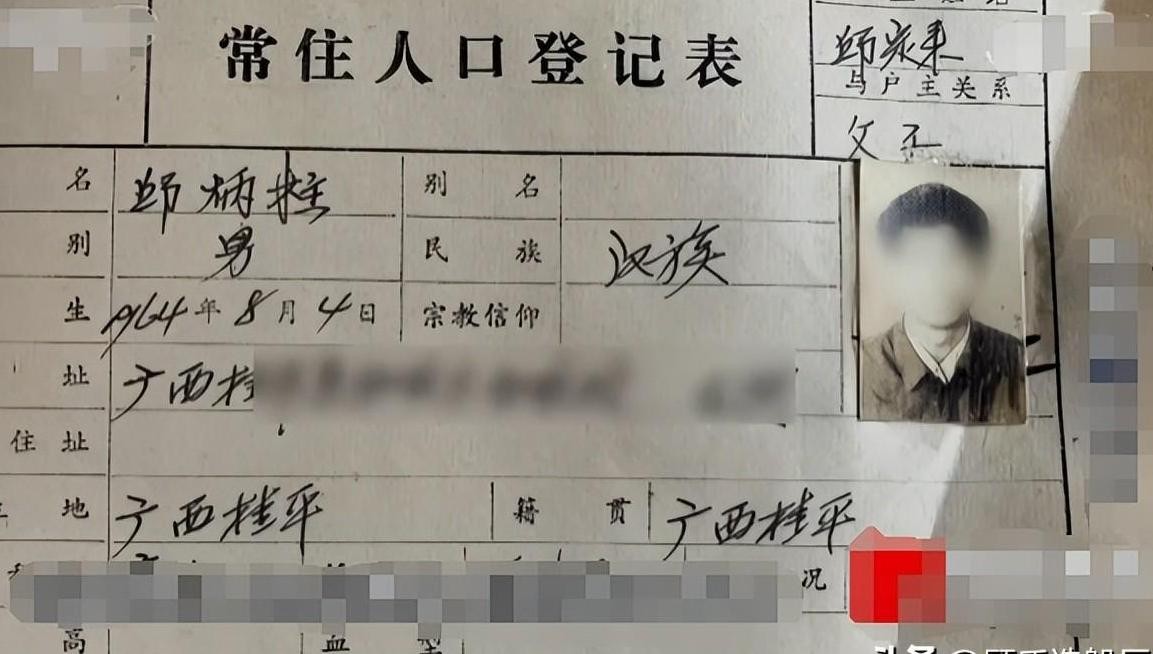 常住人口登记表
与户主关系
父子
名 邱炳柱 别名
别 男 民族 汉族
生 1964年8月4日 宗教信仰
址 广西桂
住址
地 广西桂平 籍贯 广西桂平
况
高 血型